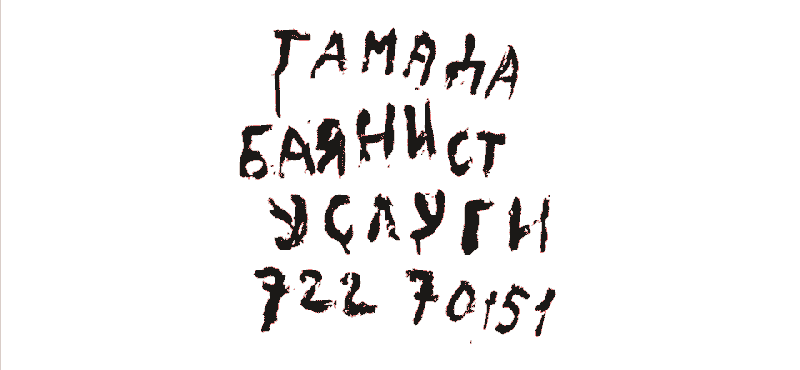 ТАМАДА
БАЯНИСТ
УСЛУГИ
722 70151